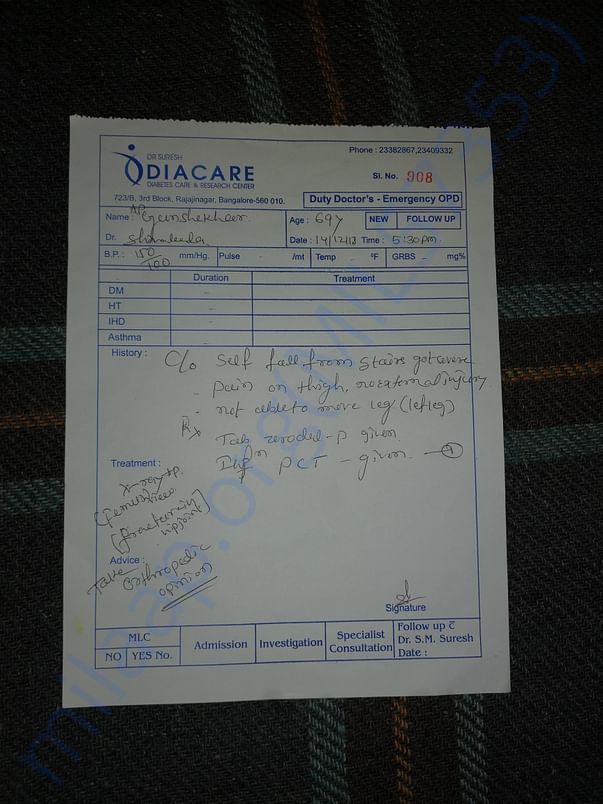 Phone : 23382867,23409332
DR SURESH
DIACARE
DIABETES CARE & RESEARCH CENTER
Sl. No. 908
723/B, 3rd Block, Rajajinagar, Bangalore-560 010.
Duty Doctor's - Emergency OPD
Name : Gunshekhar
Age : 69y
NEW
FOLLOW UP
Dr.
Date : 14/12/18 Time : 5:30pm
B.P. : 150/100 mm/Hg.
Pulse - /mt
Temp - °F
GRBS - mg%
Duration
Treatment
DM -
HT -
IHD -
Asthma -
History : C/o Self fall from stairs got severe
- pain on thigh, no external injury
- not able to move leg (left leg)
Rx Tab zerodol-P given
PCT - given
Treatment :
X-ray
(femur
[fracture in
hip joint]
Advice :
Take orthopedic
opinion
Signature
MLC
NO
YES No.
Admission
Investigation
Specialist
Consultation
Follow up c̄
Dr. S.M. Suresh
Date :